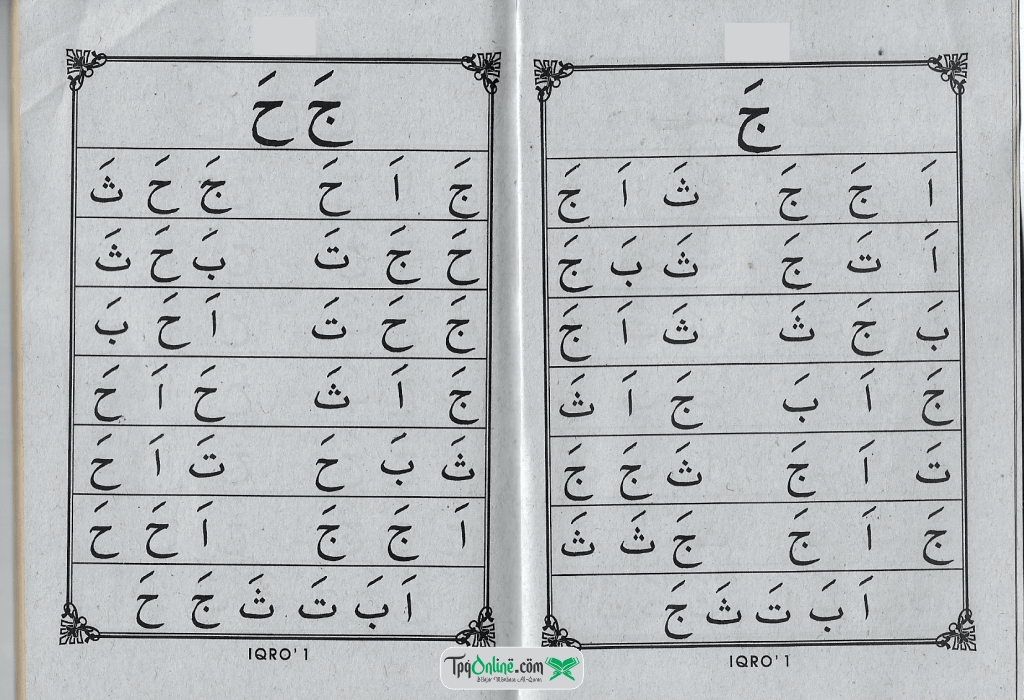 جَ
اَ جَ جَ ثَ اَ جَ
اَ تَ جَ ثَ بَ جَ
بَ جَ ثَ ثَ اَ جَ
جَ اَ بَ جَ اَ ثَ
تَ اَ جَ ثَ جَ جَ
جَ اَ جَ جَ ثَ ثَ
اَ بَ تَ ثَ جَ
IQRO' 1
جَ حَ
جَ اَ حَ جَ حَ ثَ
حَ جَ تَ بَ حَ ثَ
جَ حَ تَ اَ حَ بَ
جَ اَ ثَ حَ اَ حَ
ثَ بَ حَ تَ اَ حَ
اَ جَ جَ اَ حَ حَ
اَ بَ تَ ثَ جَ حَ
IQRO' 1
TpqOnline.com
Belajar Membaca Al-Quran